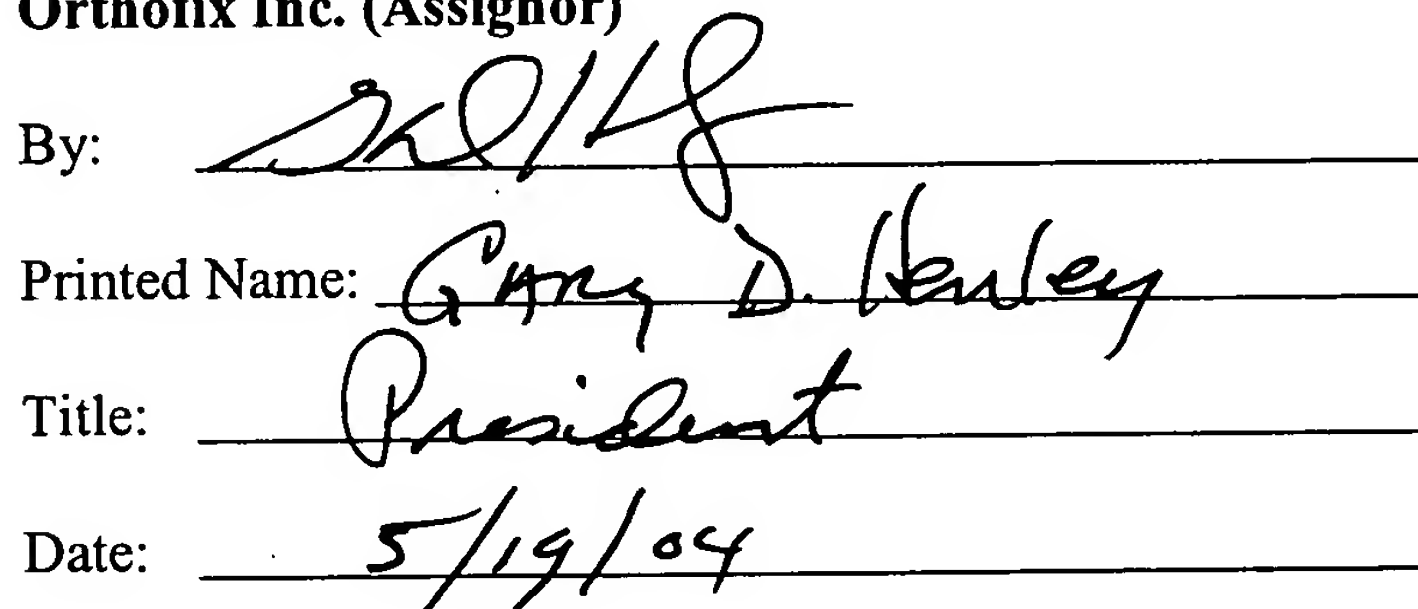 Orthofix Inc. (Assignor)
By:
Printed Name: Gary D. Henley
Title: President
Date: 5/19/04